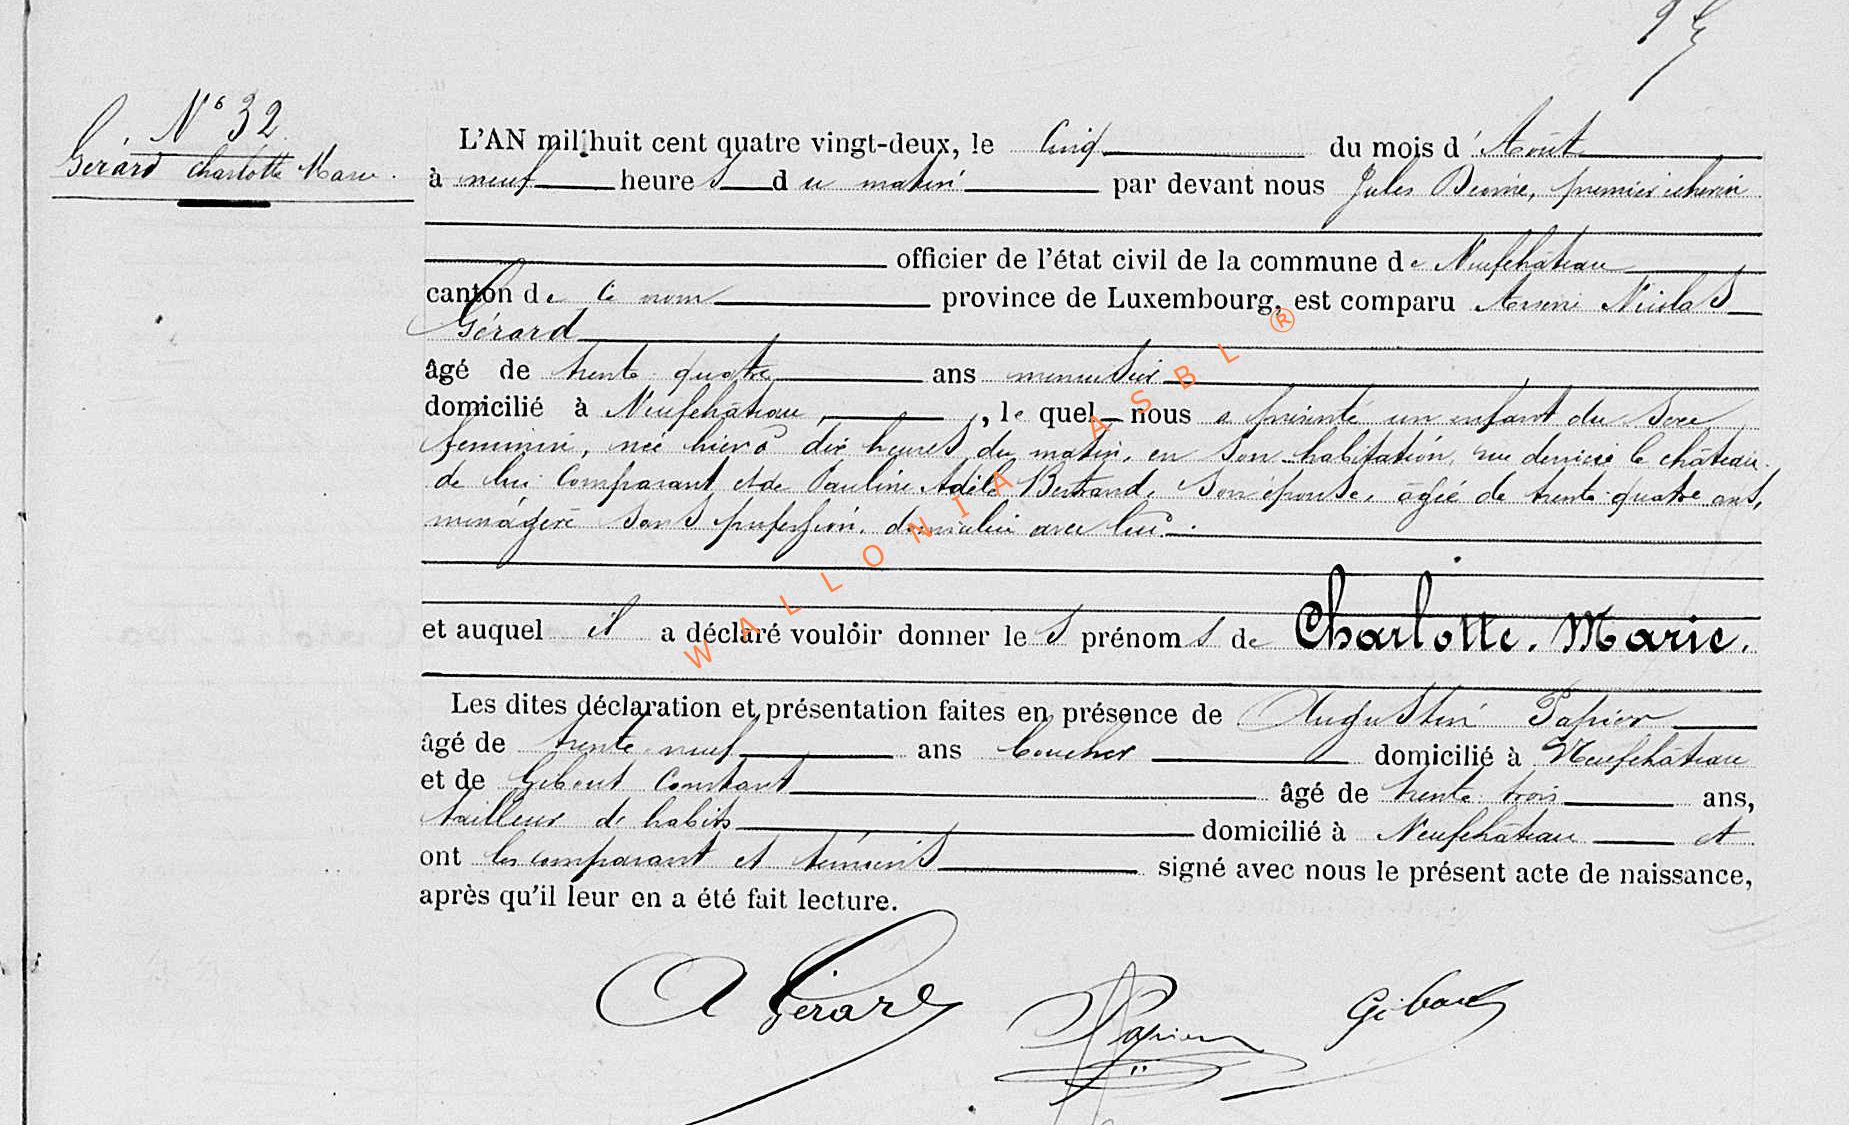 N° 32
Gérard Charlotte Marie.
L'AN mil huit cent quatre vingt-deux, le Cinq du mois d'Août
à neuf heures du matin par devant nous Jules premier échevin
officier de l'état civil de la commune de Neufchâteau
canton de ce nom province de Luxembourg, est comparu Arsène Nicolas
Gérard
âgé de trente quatre ans menuisier
domicilié à Neufchâteau, lequel nous a présenté un enfant du sexe
féminin, née hier à dix heures du matin, en son habitation, rue derrière le château
de lui Comparant et de Pauline Adèle Bertrand, son épouse, âgée de trente quatre ans,
ménagère sans profession, domiciliée avec lui.
et auquel il a déclaré vouloir donner les prénoms de Charlotte. Marie.
Les dites déclaration et présentation faites en présence de Augustin Papier
âgé de trente neuf ans boucher domicilié à Neufchâteau
et de Gibout Constant âgé de trente trois ans,
tailleur de habits domicilié à Neufchâteau et
ont les comparant et témoins signé avec nous le présent acte de naissance,
après qu'il leur en a été fait lecture.
A Gérard Papier Gibout
WALLONIA ASBL ®